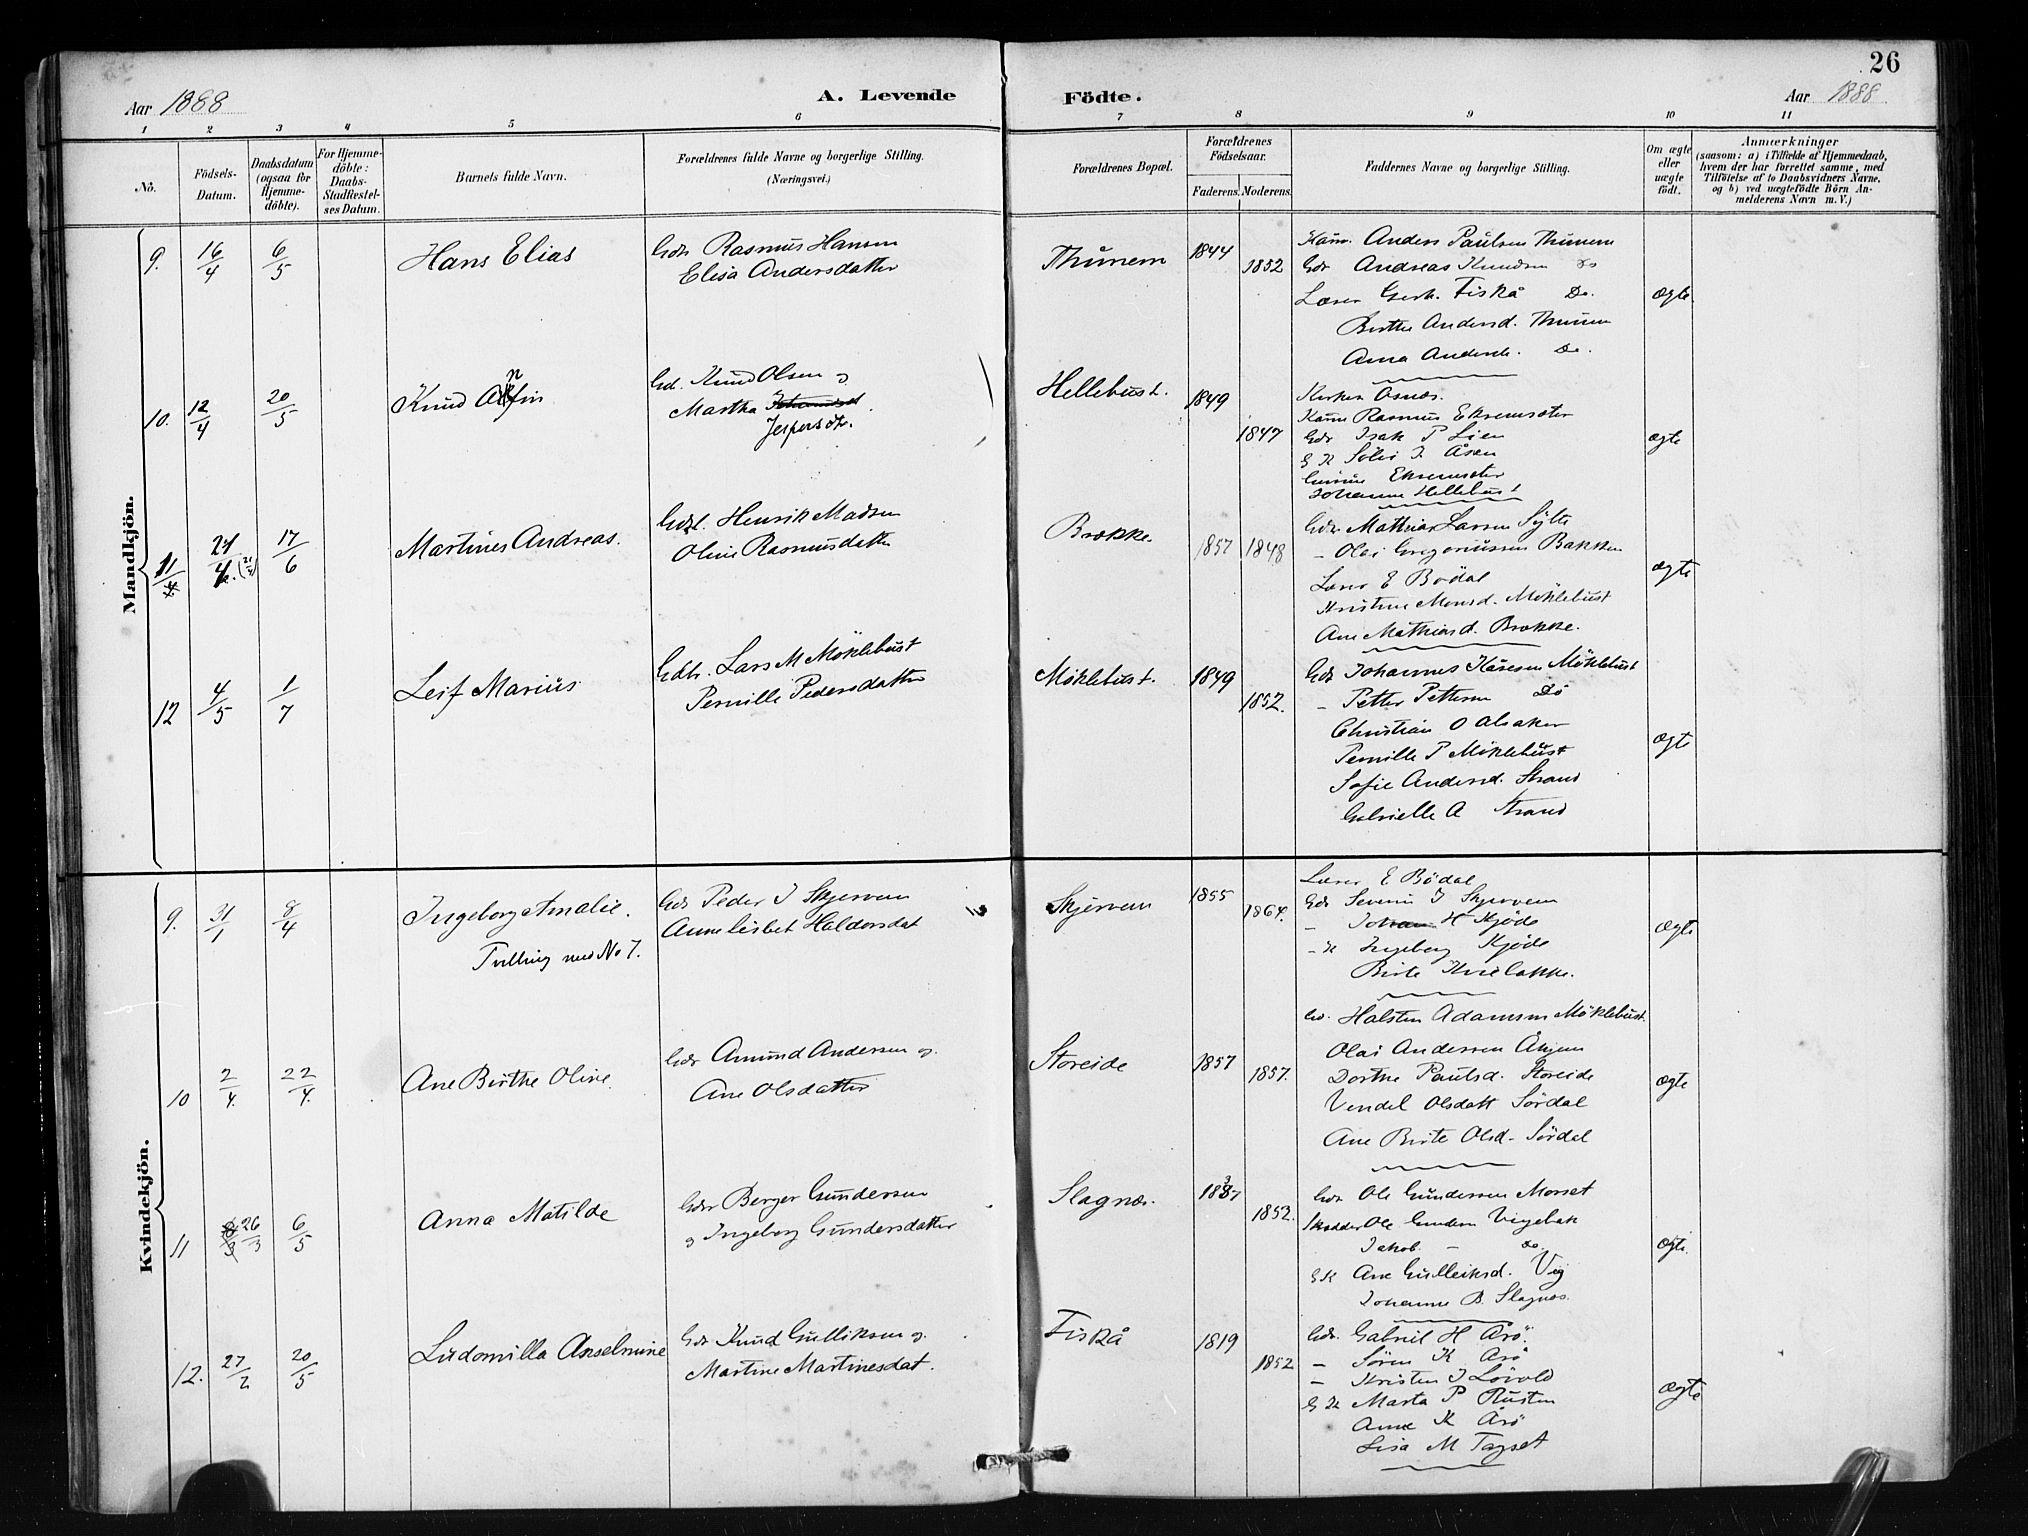 26
Aar 1888
A. Levende Födte.
Aar 1888
1 2 3 4 5 6 7 8 9 10 11
No.
Födsels-Datum.
Daabsdatum (ogsaa for Hjemme-döbte).
For Hjemme-döbte: Daabs-Stadfæstel-ses Datum.
Barnets fulde Navn.
Forældrenes fulde Navne og borgerlige Stilling.
(Næringsvei.)
Forældrenes Bopæl.
Forældrenes Födselsaar.
Faderens. Moderens.
Faddernes Navne og borgerlige Stilling.
Om ægte eller uægte födt.
Anmærkninger
(saasom: a) i Tilfælde af Hjemmedaab,
hvem der har forrettet samme, med
Tilföielse af to Daabsvidners Navne.
og b) ved uægtefödte Börn An-
melderens Navn m. V.)
Mandkjön.
9. 16/4 6/5 Hans Elias
Gdr Rasmus Hansen
Elisa Andersdatter
Thunem 1844 1852
Anders Paulsen Thunem
Gdr Andreas Knudsen Do
Lærer Gerh. Fiskå Do.
Birthe Andersd. Thunem
Anna Andersd. Do.
ægte
10. 12/4 20/5 Knud
Gd. Knud Olsen og
Martha Jespersdtr.
Hellebust. 1849 1847
Kirkes. Osnes.
Rasmus Ekremsæter
Gdr Isak P Lien
G K Åsen
Ekremsæter
Johanne Hellebust
ægte
11 24/4 17/6 Martines Andreas.
Henrik Madsen
Oline Rasmusdatter
Brække 1857 1848
Gdr Mathias Larsen Sylte
- Olai Gregoriussen Bakken
Lærer E Bödal
Kristine Monsd. Möklebust
Ane Mathiasd. Brække.
ægte
12 4/5 1/7 Leif Marius
Gdbr. Lars M Möklebust
Pernille Pedersdatter
Möklebust. 1849 1852.
Gdr Johannes Kåresen Möklebust
- Petter Pettersen Do
Christian O Alsaker
Pernille P Möklebust
Sofie Andersd. Strand
Gabrielle A Strand
ægte
Kvindekjön.
9. 31/1 8/4 Ingeborg Amalie.
Tvilling med No 7.
Gdr Peder J Skjervem
Anne Lisbet Haldorsdat
Skjervem 1855 1864.
Lærer E Bödal
Gdr Severin J Skjervem
- Johan H Kjöde
- K Ingeborg Kjöde
Birte
ægte
10 2/4. 22/4. Ane Birthe Oline.
Gdr Amund Andersen og.
Ane Olsdatter
Storeide 1857 1857.
Halsten Adamsen Möklebust.
Olai Andersen Åhjem
Dorthe Paulsd. Storeide
Vendel Olsdatt Sördal
Ane Birte Olsd. Sördal
ægte
11 26/3 6/5 Anna Matilde
Gdr Berger Gundersen
og Ingeborg Gundersdatter
Slagnæs. 1837 1852.
Gdr Ole Gundersen Morset
Skrædder Ole Gundersen Vigebak
Jakob - Do.
G K Ane Gulleiksd. Vig
Johanne B. Slagnæs.
ægte.
12. 27/2 20/5 Ludomilla Anselmine
Gdr Knud Gulliksen og.
Martine Martinesdat.
Fiskå 1819 1852
Gdr. Gabriel H Årö.
- Sören K Årö
- Kristen J Lövold
G K Marta P Rusten
Anne K Årö
Lisa M Tagset
ægte